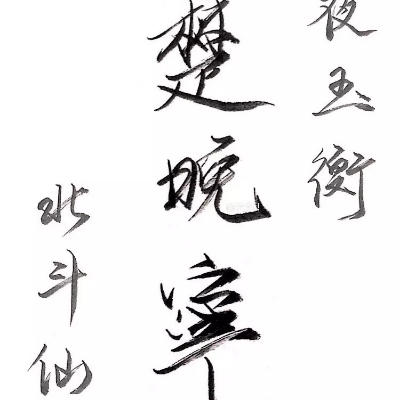 夜玉衡
楚晚寧
北斗仙